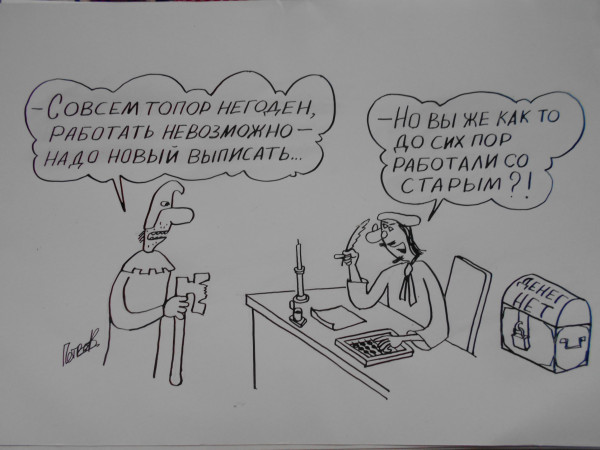 – СОВСЕМ ТОПОР НЕГОДЕН,
РАБОТАТЬ НЕВОЗМОЖНО –
НАДО НОВЫЙ ВЫПИСАТЬ...
– НО ВЫ ЖЕ КАК ТО
ДО СИХ ПОР
РАБОТАЛИ СО
СТАРЫМ?!
ДЕНЕГ
НЕТ